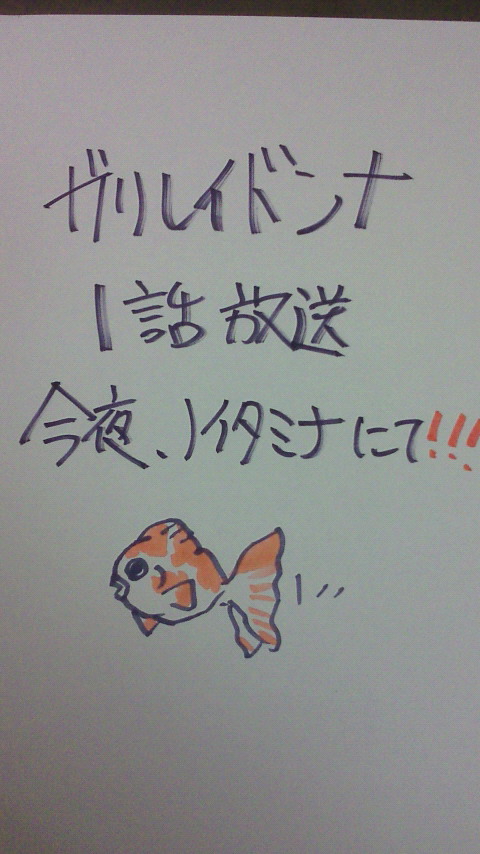 ガリレイドンナ
1話放送
今夜、ノイタミナにて!!!